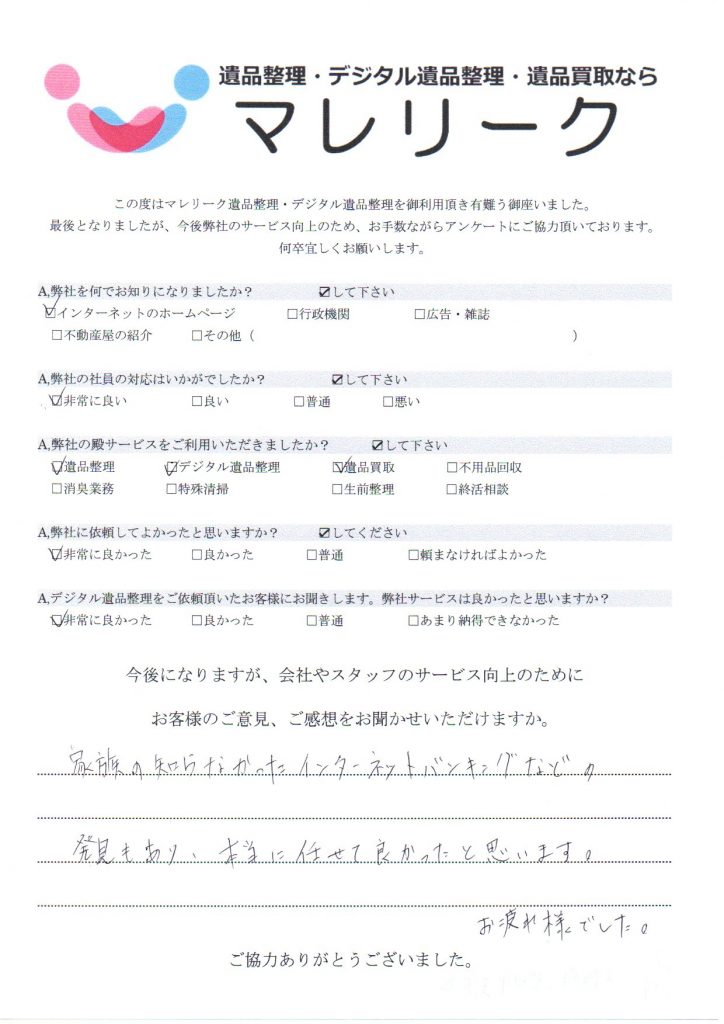 遺品整理・デジタル遺品整理・遺品買取なら
マレリーク
この度はマレリーク遺品整理・デジタル遺品整理を御利用頂き有難う御座いました。
最後となりましたが、今後弊社のサービス向上のため、お手数ながらアンケートにご協力頂いております。
何卒宜しくお願いします。
A,弊社を何でお知りになりましたか？ ☑して下さい
☑インターネットのホームページ □行政機関 □広告・雑誌
□不動産屋の紹介 □その他（ ）
A,弊社の社員の対応はいかがでしたか？ ☑して下さい
☑非常に良い □良い □普通 □悪い
A,弊社の殿サービスをご利用いただきましたか？ ☑して下さい
☑遺品整理 ☑デジタル遺品整理 ☑遺品買取 □不用品回収
□消臭業務 □特殊清掃 □生前整理 □終活相談
A,弊社に依頼してよかったと思いますか？ ☑してください
☑非常に良かった □良かった □普通 □頼まなければよかった
A,デジタル遺品整理をご依頼頂いたお客様にお聞きします。弊社サービスは良かったと思いますか？
☑非常に良かった □良かった □普通 □あまり納得できなかった
今後になりますが、会社やスタッフのサービス向上のために
お客様のご意見、ご感想をお聞かせいただけますか。
家族の知らなかったインターネットバンキングなどの
発見もあり、本当に任せて良かったと思います。
お疲れ様でした。
ご協力ありがとうございました。